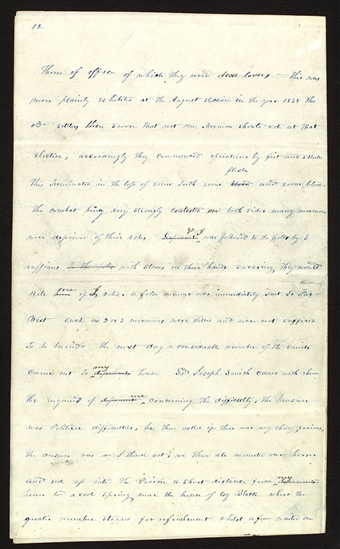 12
them of offices of which they were dear lovers — this was
more plainly exhibited at the August election in the year 1838 the
old settlers then swore that not one Mormon should vote at that
election, accordingly they commenced operations by fist and
flesh
This terminated in the loss of some teeth some blood and some
the combat being very closely contested on both sides many mormons
were deprived of their votes. Deponent & I was followed to the polls by 3
ruffians to the polls with stones in their hands swearing they would
kill me if I when a false message was immediately sent to Far
West such as 2 or 3 mormons were killed and were not suffered
To be buried. the next day a considerable number of the saints
came out to deponents my house Joseph Smith came with them
he enquired of deponent me concerning the difficulty, the answer
was Political difficulties, he then asked if there was any thing serious,
the answer was no I think not we then all mounted our horses
and rode up into the Prairie a short distance from my
house to a cool spring, near the house of Black where the
greater number stopped for refreshment whilst a few waited on